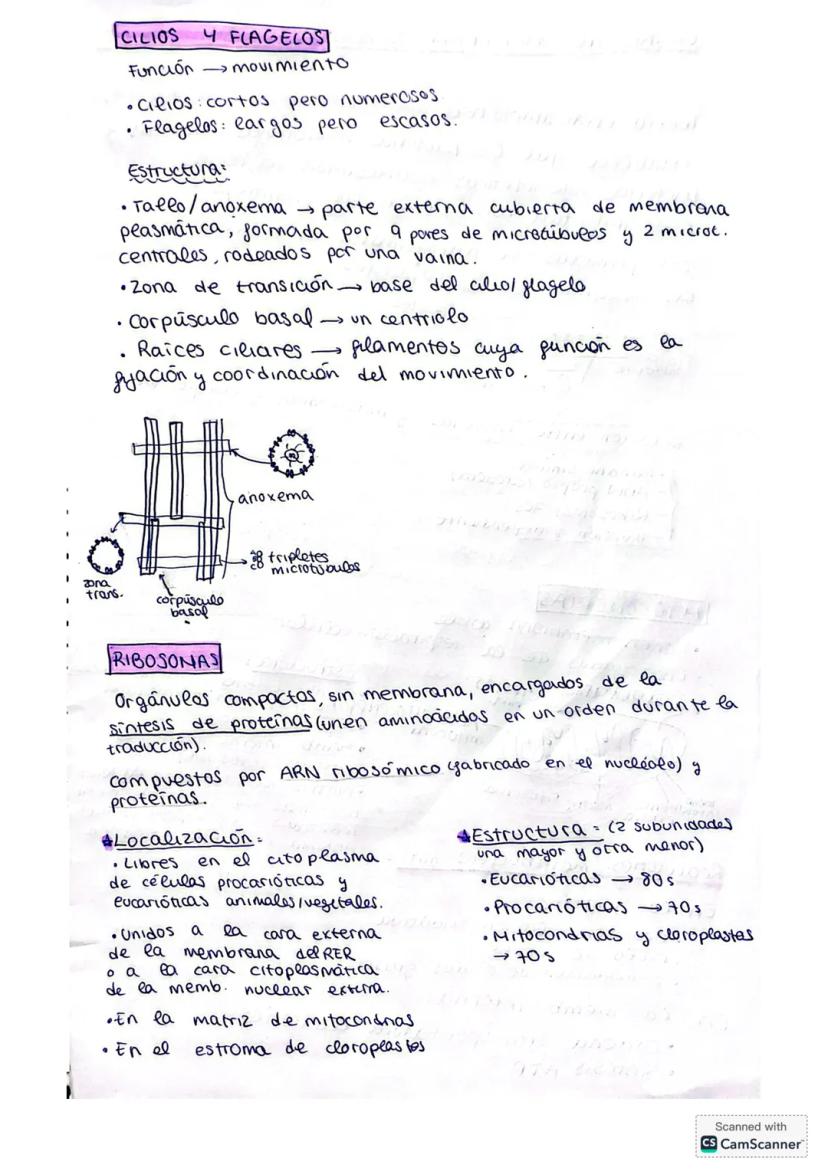 CILIOS Y FLAGELOS
Función → movimiento
• Cilios: cortos pero numerosos
• Flagelos: largos pero escasos.
Estructura:
• Tallo/anoxema → parte externa cubierta de membrana
plasmática, formada por 9 pares de microtúbulos y 2 microt.
centrales, rodeados por una vaina.
• Zona de transición → base del cilio/flagelo
• Corpúsculo basal → un centriolo
• Raíces ciliares → filamentos cuya función es la
fijación y coordinación del movimiento.
anoxema
tripletes
microtúbulos
zona
trans.
corpúsculo
basal
RIBOSOMAS
Orgánulos compactos, sin membrana, encargados de la
síntesis de proteínas (unen aminoácidos en un orden durante la
traducción).
Compuestos por ARN ribosómico (fabricado en el nucléolo) y
proteínas.
Localización:
• Libres en el citoplasma
de células procarióticas y
eucarióticas animales/vegetales.
• Unidos a la cara externa
de la membrana del RER
o a la cara citoplasmática
de la memb. nuclear externa.
• En la matriz de mitocondrias
• En el estroma de cloroplastos
Estructura: (2 subunidades
una mayor y otra menor)
• Eucarióticas → 80s
• Procarióticas → 70s
• Mitocondrias y cloroplastos
→ 70s
Scanned with
CS CamScanner